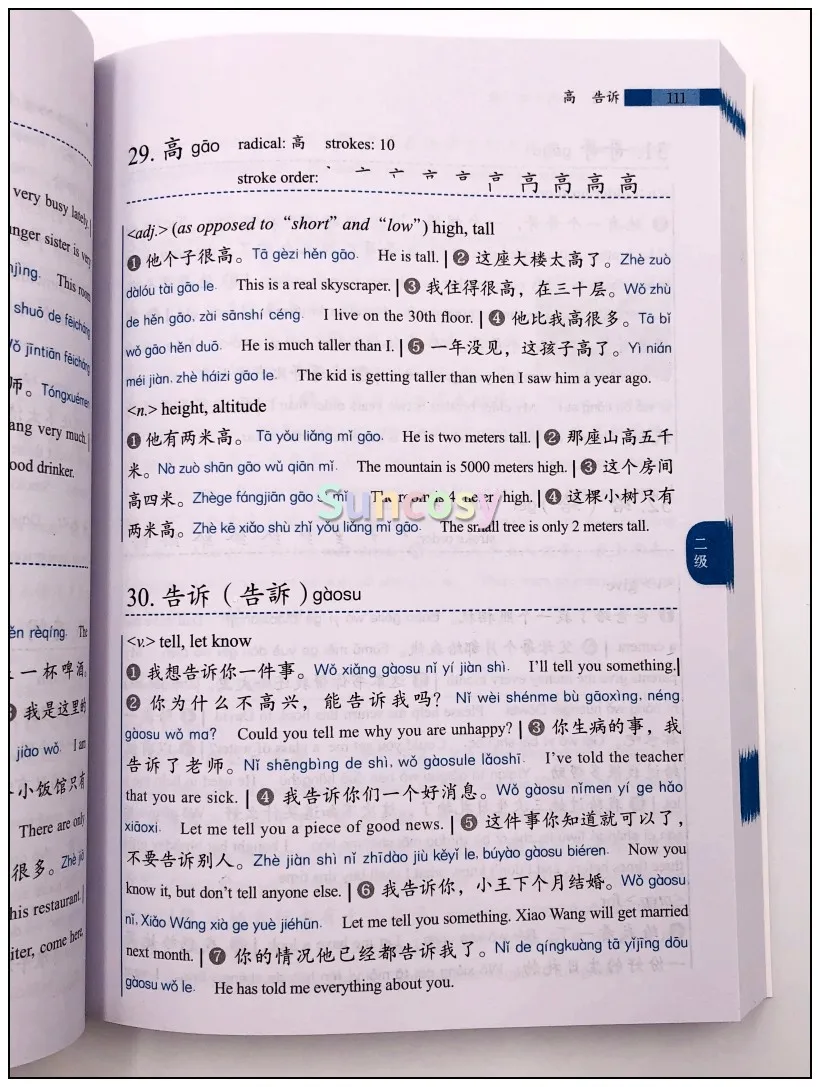 very busy lately.
nger sister is very
njìng. This room
shuō de fēicháng
Wǒ jīntiān fēicháng
师。Tóngxuémen
ang very much.
ood drinker.
ěn rèqíng. The
一杯啤酒。
我是这里的
jiào wǒ. I am
小饭馆只有
There are only
很多。Zhè jiā
his restaurant.
iter, come here.
高 告诉 111
29. 高 gāo radical: 高 strokes: 10
stroke order:
<adj.> (as opposed to “short” and “low”) high, tall
❶ 他个子很高。Tā gèzi hěn gāo. He is tall. | ❷ 这座大楼太高了。Zhè zuò
dàlóu tài gāo le. This is a real skyscraper. | ❸ 我住得很高，在三十层。Wǒ zhù
de hěn gāo, zài sānshí céng. I live on the 30th floor. | ❹ 他比我高很多。Tā bǐ
wǒ gāo hěn duō. He is much taller than I. | ❺ 一年没见，这孩子高了。Yì nián
méi jiàn, zhè háizi gāo le. The kid is getting taller than when I saw him a year ago.
<n.> height, altitude
❶ 他有两米高。Tā yǒu liǎng mǐ gāo. He is two meters tall. | ❷ 那座山高五千
米。Nà zuò shān gāo wǔ qiān mǐ. The mountain is 5000 meters high. | ❸ 这个房间
高四米。Zhège fángjiān gāo sì mǐ. The room is 4 meters high. | ❹ 这棵小树只有
Suncosy
两米高。Zhè kē xiǎo shù zhǐ yǒu liǎng mǐ gāo. The small tree is only 2 meters tall.
二级
30. 告诉（告訴）gàosu
<v.> tell, let know
❶ 我想告诉你一件事。Wǒ xiǎng gàosu nǐ yí jiàn shì. I’ll tell you something. |
❷ 你为什么不高兴，能告诉我吗？Nǐ wèi shénme bù gāoxìng, néng
gàosu wǒ ma? Could you tell me why you are unhappy? | ❸ 你生病的事，我
告诉了老师。Nǐ shēngbìng de shì, wǒ gàosule lǎoshī. I’ve told the teacher
that you are sick. | ❹ 我告诉你们一个好消息。Wǒ gàosu nǐmen yí ge hǎo
xiāoxi. Let me tell you a piece of good news. | ❺ 这件事你知道就可以了，
不要告诉别人。Zhè jiàn shì nǐ zhīdào jiù kěyǐ le, búyào gàosu biéren. Now you
know it, but don’t tell anyone else. | ❻ 我告诉你，小王下个月结婚。Wǒ gàosu
nǐ, Xiǎo Wáng xià ge yuè jiéhūn. Let me tell you something. Xiao Wang will get married
next month. | ❼ 你的情况他已经都告诉我了。Nǐ de qíngkuàng tā yǐjīng dōu
gàosu wǒ le. He has told me everything about you.